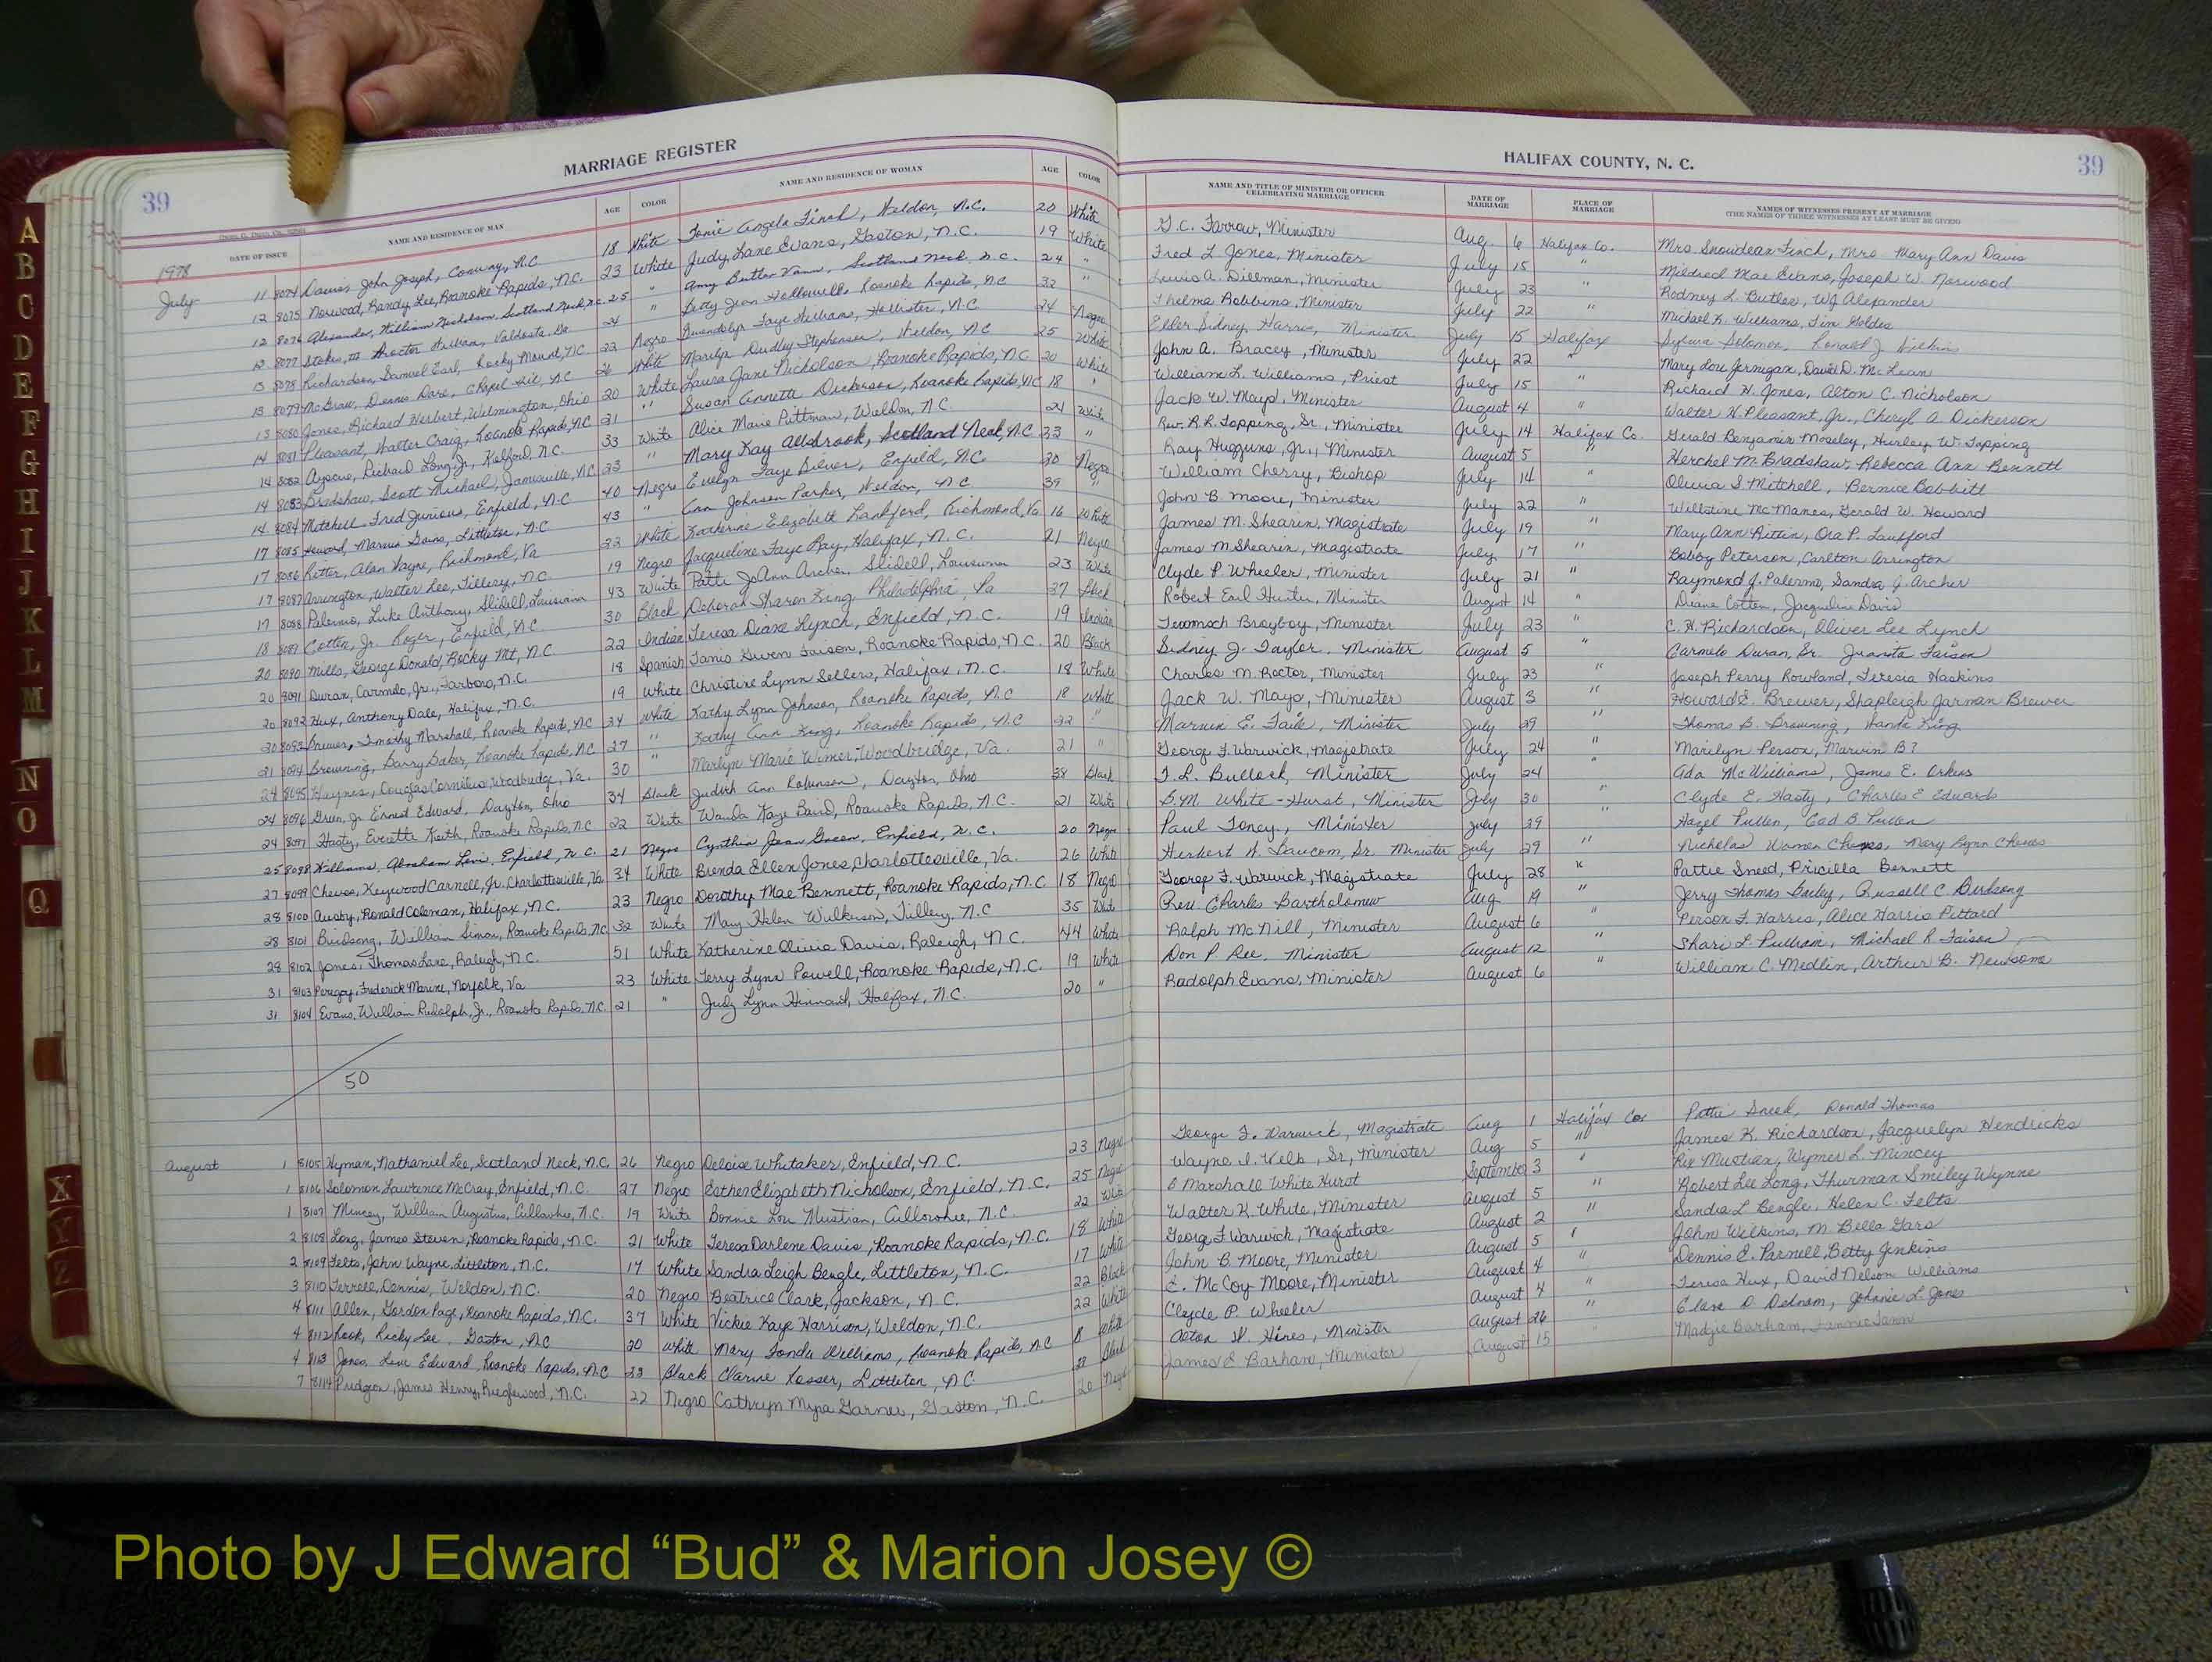 39
MARRIAGE REGISTER
DATE OF ISSUE NAME AND RESIDENCE OF MAN AGE COLOR NAME AND RESIDENCE OF WOMAN AGE COLOR
1978
July 11 8074 Davis, John Joseph, Conway, N.C. 18 White Tonie Angela Finch, Weldon, N.C. 20 White
12 8075 Norwood, Randy Lee, Roanoke Rapids, N.C. 23 White Judy Lane Evans, Gaston, N.C. 19 White
12 8076 Alexander, William Nicholson, Scotland Neck, N.C. 25 " Amy Butler Vann, Scotland Neck, N.C. 24 "
12 8077 Stokes, III Proctor, Valdosta, Ga 24 " Betty Jean Hollowell, Roanoke Rapids, N.C. 32 "
13 8078 Richardson, Samuel Earl, Rocky Mount, N.C. 22 Negro Gwendolyn Faye Williams, Hollister, N.C. 24 Negro
13 8079 McGraw, Dennis Dare, Chapel Hill, N.C. 26 White Marilyn Dudley Stephenson, Weldon, N.C. 25 White
13 8080 Jones, Richard Herbert, Wilmington, Ohio 20 White Laura Jane Nicholson, Roanoke Rapids, N.C. 20 White
14 8081 Pleasant, Walter Craig, Roanoke Rapids, N.C. 21 " Susan Annette Dickerson, Roanoke Rapids, N.C. 18 "
14 8082 Richard Long, Jr., Kelford, N.C. 33 White Alice Marie Pittman, Weldon, N.C. 24 White
14 8083 Bradshaw, Scott Michael, Jamesville, N.C. 23 " Mary Kay Allsbrook, Scotland Neck, N.C. 23 "
14 8084 Mitchell, Fred Junious, Enfield, N.C. 40 Negro Evelyn Faye Silver, Enfield, N.C. 30 Negro
17 8085 Howard, Marvin, Littleton, N.C. 43 " Ann Johnson Parker, Weldon, N.C. 39 "
17 8086 Ritter, Alan Wayne, Richmond, Va 22 White Katherine Elizabeth Lankford, Richmond, Va 16 White
17 8087 Arrington, Walter Lee, Tillery, N.C. 19 Negro Jacqueline Faye Ray, Halifax, N.C. 21 Negro
17 8088 Palermo, Luke Anthony, Slidell, Louisiana 43 White Patti JoAnn Archer, Slidell, Louisiana 23 White
18 8089 Cotten, Jr. Roger, Enfield, N.C. 30 Black Deborah Sharon King, Philadelphia, Pa 37 Black
20 8090 Mills, George Donald, Rocky Mt, N.C. 22 Indian Teresa Diane Lynch, Enfield, N.C. 19 Indian
20 8091 Duran, Carmelo, Jr., Tarboro, N.C. 18 Spanish Tanis Gwen Faison, Roanoke Rapids, N.C. 20 Black
20 8092 Hux, Anthony Dale, Halifax, N.C. 19 White Christine Lynn Sellers, Halifax, N.C. 18 White
20 8093 Brewer, Timothy Marshall, Roanoke Rapids, N.C. 24 White Kathy Lynn Johnson, Roanoke Rapids, N.C. 18 White
21 8094 Browning, Barry Baker, Roanoke Rapids, N.C. 27 " Kathy Ann King, Roanoke Rapids, N.C. 22 "
24 8095 Haynes, Douglas Cornelius, Woodbridge, Va. 30 " Marilyn Marie Wimer, Woodbridge, Va. 21 "
24 8096 Green, Jr. Ernest Edward, Dayton, Ohio 34 Black Judith Ann Robinson, Dayton, Ohio 38 Black
24 8097 Hasty, Everette Keith, Roanoke Rapids, N.C. 22 White Wanda Kaye Baird, Roanoke Rapids, N.C. 21 White
25 8098 Williams, Abraham Levi, Enfield, N.C. 21 Negro Cynthia Jean Green, Enfield, N.C. 20 Negro
27 8099 Cheves, Keywood Carnell, Jr. Charlottesville, Va 34 White Brenda Ellen Jones, Charlottesville, Va. 26 White
28 8100 Ausby, Ronald Coleman, Halifax, N.C. 23 Negro Dorothy Mae Bennett, Roanoke Rapids, N.C. 18 Negro
28 8101 Birdsong, William Simon, Roanoke Rapids, N.C. 32 White Mary Helen Wilkerson, Tillery, N.C. 35 White
28 8102 Jones, Thomas Lare, Raleigh, N.C. 51 White Katherine Olivia Davis, Raleigh, N.C. 44 White
31 8103 Peregoy, Frederick Marine, Norfolk, Va 23 White Terry Lynn Powell, Roanoke Rapids, N.C. 19 White
31 8104 Evans, William Rudolph, Jr., Roanoke Rapids, N.C. 21 " Judy Lynn Hinnant, Halifax, N.C. 20 "
50
August 1 8105 Hyman, Nathaniel Lee, Scotland Neck, N.C. 26 Negro Deloise Whitaker, Enfield, N.C. 23 Negro
1 8106 Solomon, Lawrence McCray, Enfield, N.C. 27 Negro Esther Elizabeth Nicholson, Enfield, N.C. 25 Negro
1 8107 Mincey, William Augustus, Cullowhee, N.C. 19 White Bonnie Lou Mustian, Cullowhee, N.C. 22 White
2 8108 Long, James Steven, Roanoke Rapids, N.C. 21 White Teresa Darlene Davis, Roanoke Rapids, N.C. 18 White
2 8109 Felts, John Wayne, Littleton, N.C. 17 White Sandra Leigh Bengle, Littleton, N.C. 17 White
3 8110 Terrell, Dennis, Weldon, N.C. 20 Negro Beatrice Clark, Jackson, N.C. 22 Black
4 8111 Allen, Gordon Page, Roanoke Rapids, N.C. 37 White Vickie Kaye Harrison, Weldon, N.C. 22 White
4 8112 Rook, Ricky Lee, Gaston, N.C. 20 White Mary Fonda Williams, Roanoke Rapids, N.C. 8 White
4 8113 Jones, Edward, Roanoke Rapids, N.C. 23 Black Clarine Kosser, Littleton, N.C. Black
7 8114 Pridgen, James Henry, Riegelwood, N.C. 22 Negro Cathryn Myra Garner, Gaston, N.C. 20 Negro
HALIFAX COUNTY, N. C.
39
NAME AND TITLE OF MINISTER OR OFFICER CELEBRATING MARRIAGE DATE OF MARRIAGE PLACE OF MARRIAGE NAMES OF WITNESSES PRESENT AT MARRIAGE
(THE NAMES OF THREE WITNESSES AT LEAST MUST BE GIVEN)
G.C. Farrow, Minister Aug. 6 Halifax Co. Mrs Snowdean Finch, Mrs Mary Ann Davis
Fred L Jones, Minister July 15 " Mildred Mae Evans, Joseph W. Norwood
Lewis A. Dillman, Minister July 23 " Rodney L Butler, WJ Alexander
Thelma Robbins, Minister July 22 " Michael K. Williams, Tim Holdes
Elder Sidney Harris, Minister July 15 Halifax Sylvia Solomon, Ronald J
John A. Bracey, Minister July 22 " Mary Lou Jernigan, David D. McLean
William L. Williams, Priest July 15 " Richard H. Jones, Alton C. Nicholson
Jack W. Mayo, Minister August 4 " Walter H. Pleasant, Jr., Cheryl A. Dickerson
Rev. R.L. Topping, Sr., Minister July 14 Halifax Co. Gerald Benjamin Moseley, Hurley W. Topping
Ray Huggins, Jr., Minister August 5 " Herchel M. Bradshaw, Rebecca Ann Bennett
William Cherry, Bishop July 14 Olivia S. Mitchell, Bernice Bobbitt
John B Moore, Minister July 22 " Willstine McManes, Gerald W. Howard
James M. Shearin, Magistrate July 19 " Mary Ann Ritter, Ora P. Lankford
James M Shearin, Magistrate July 17 " Bobby Peterson, Carlton Arrington
Clyde P Wheeler, Minister July 21 " Raymond J. Palermo, Sandra J. Archer
Robert Earl Hunter, Minister August 14 " Diane Cotten, Jacqueline Davis
Tecumseh Brayboy, Minister July 23 " C. H. Richardson, Oliver Lee Lynch
Sidney J. Taylor, Minister August 5 " Carmelo Duran, Sr. Juanita Faison
Charles M. Rector, Minister July 23 " Joseph Perry Rowland, Teresia Haskins
Jack W. Mayo, Minister August 3 " Howard E. Brewer, Shapleigh Jarman Brewer
Marvin E. Faile, Minister July 29 " Thomas B. Browning, Wanda King
George F. Warwick, Magistrate July 24 " Marilyn Person, Marvin B?
F. L. Bullock, Minister July 24 " Ada McWilliams, James E.
B.M. White-Hurst, Minister July 30 " Clyde E. Hasty, Charles E Edwards
Paul Toney, Minister July 29 Hazel Pullen, Cad B. Pullen
Herbert W. Baucom, Sr. Minister July 29 " Nicholas Women Cheves, Mary Lynn Cheves
George F. Warwick, Magistrate July 28 " Pattie Sneed, Pricilla Bennett
Rev. Charles Bartholomew Aug 19 " Jerry Thomas Farley, Russell C. Birdsong
Ralph McNill, Minister August 6 " Person F. Harris, Alice Harris Pittard
Don P. Lee, Minister August 12 " Shari L. Pulliam, Michael R. Faison
Rudolph Evans, Minister August 6 " William C. Medlin, Arthur B. Newsome
George F. Warwick, Magistrate Aug 1 Halifax Co. Pattie Sneed, Donald Thomas
Wayne I. Welb, Sr., Minister Aug 5 " James K. Richardson, Jacquelyn Hendricks
O Marshall White Hurst September 3 " Rex Mustian, Wymer L. Mincey
Walter K. White, Minister August 5 " Robert Lee Long, Thurman Smiley Wynne
George F Warwick, Magistrate August 2 " Sandra L. Bengle, Helen C. Felts
John B. Moore, Minister August 5 " John Wilkins, M. Bella Gars
E. McCoy Moore, Minister August 4 " Dennis E. Parnell, Betty Jenkins
Clyde P. Wheeler August 4 " Teresa Hux, David Nelson Williams
Alton W. Hines, Minister August 26 " Clara D. Debnam, Johnnie L. Jones
James E Barham, Minister August 15 Madgie Barham, Fannie
A
B
C
D
E
F
G
H
I
J
K
L
M
N
O
Q
X
Y
Z
Photo by J Edward “Bud” & Marion Josey ©